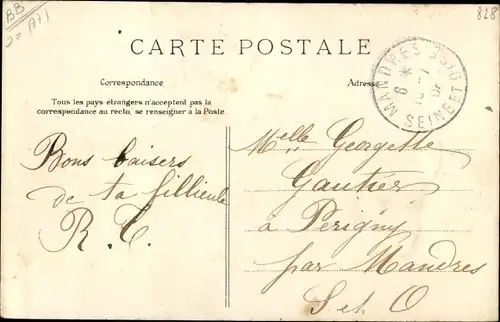 BB
828
CARTE POSTALE
Correspondance
Adresse
Tous les pays étrangers n'acceptent pas la
correspondance au recto, se renseigner à la Poste.
MANDRES
SEINE ET
Bons baisers
de ta fillieule
R. C.
Melle Georgette
Gautier
à Périgny
par Mandres
S et O